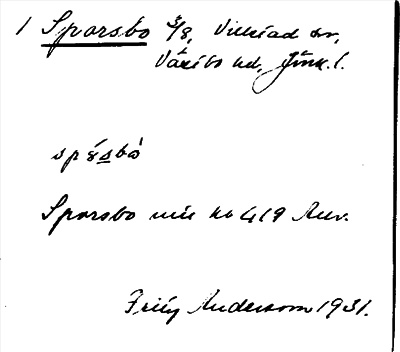 1 Sparsbo 3/8, Villstad sn,
Västbo hd, Jönk. l.
spɑ́sbò
Sparsbo
Fritz Anderson 1931.